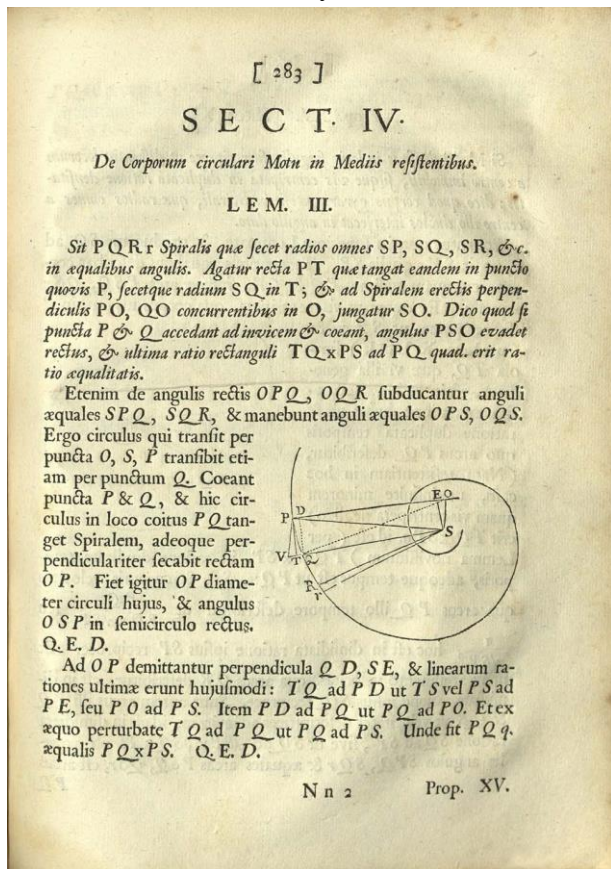 [ 283 ]
SECT. IV.
De Corporum circulari Motu in Mediis resistentibus.
LEM. III.
Sit PQRr Spiralis quæ secet radios omnes SP, SQ, SR, &c.
in æqualibus angulis. Agatur recta PT quæ tangat eandem in puncto
quovis P, secetque radium SQ in T; & ad Spiralem erectis perpen-
diculis PO, QO concurrentibus in O, jungatur SO. Dico quod si
puncta P & Q accedant ad invicem & coeant, angulus PSO evadet
rectus, & ultima ratio rectanguli TQxPS ad PQ quad. erit ra-
tio æqualitatis.
Etenim de angulis rectis OPQ, OQR subducantur anguli
æquales SPQ, SQR, & manebunt anguli æquales OPS, OQS.
Ergo circulus qui transit per
puncta O, S, P transibit eti-
am per punctum Q. Coeant
puncta P & Q, & hic cir-
culus in loco coitus PQ tan-
get Spiralem, adeoque per-
pendiculariter secabit rectam
OP. Fiet igitur OP diame-
ter circuli hujus, & angulus
OSP in semicirculo rectus.
Q. E. D.
P D
E O
S
V T Q
R
r
Ad OP demittantur perpendicula QD, SE, & linearum ra-
tiones ultimæ erunt hujusmodi: TQ ad PD ut TS vel PS ad
PE, seu PO ad PS. Item PD ad PQ ut PQ ad PO. Et ex
æquo perturbate TQ ad PQ ut PQ ad PS. Unde fit PQ q.
æqualis PQxPS. Q. E. D.
Nn 2 Prop. XV.